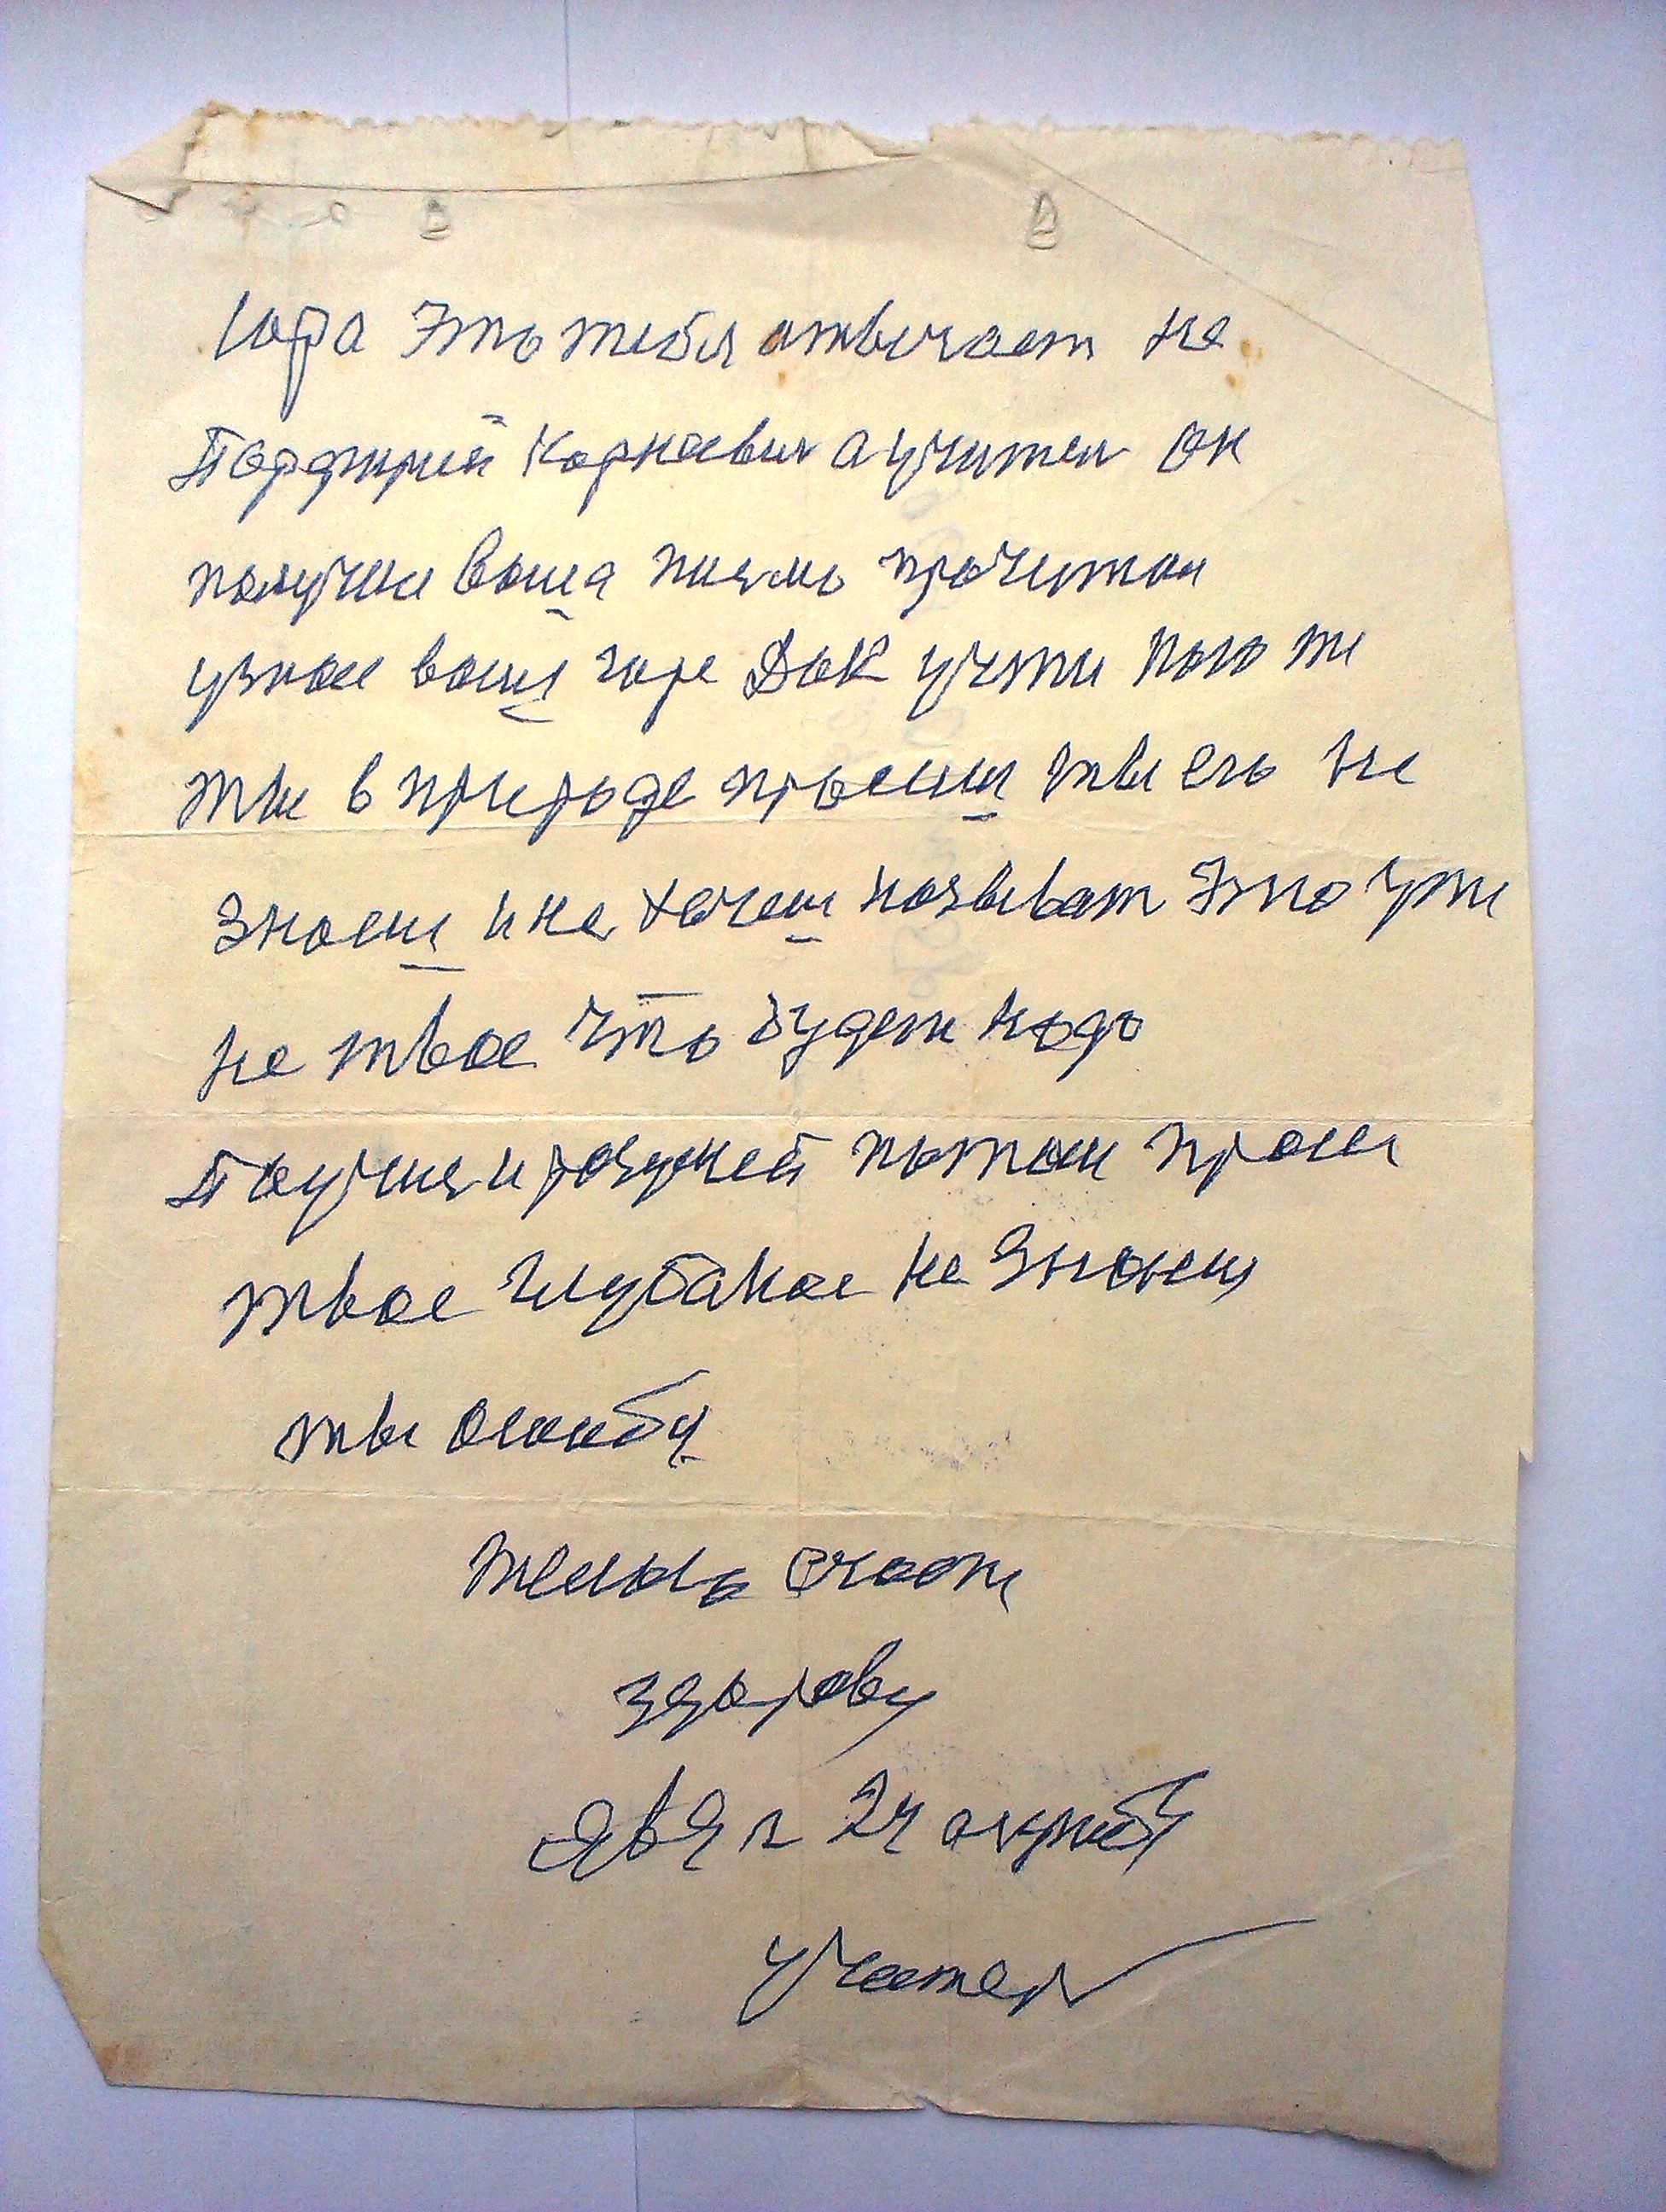 Юра Это тебя атвичает не
Парфирий Корнеевич а учител он
получил ваша писмо прочитал
узнал ваши горе Док учти кого ж
ты в природе просиш ты его не
знаеш и не хочеш называт Это уже
не твое что будет надо
Поучися и разумей потом проси
твое глубакое не знаеш
ты ошибу
Желаю счаст
здоровя
учител